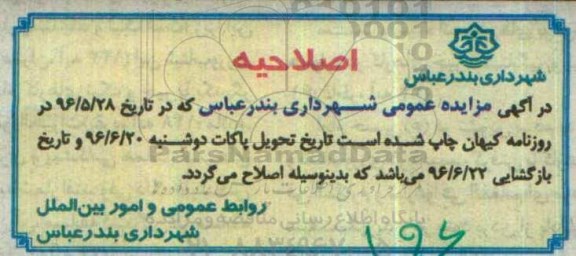 شهرداری بندرعباس
اصلاحیه
در آگهی مزایده عمومی شهرداری بندرعباس که در تاریخ ۹۶/۵/۲۸ در
روزنامه کیهان چاپ شده است تاریخ تحویل پاکات دوشنبه ۹۶/۶/۲۰ و تاریخ
بازگشایی ۹۶/۶/۲۲ می‌باشد که بدینوسیله اصلاح می‌گردد.
ParsNamadData
روابط عمومی و امور بین‌الملل
شهرداری بندرعباس